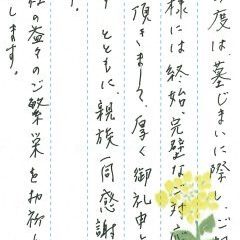 度は、墓じまいに際し、ご
様には終始、完璧なご対応
頂きまして、厚く御礼申し
す。とともに、親族一同感謝
す。
社の益々のご繁栄をお祈り
します。